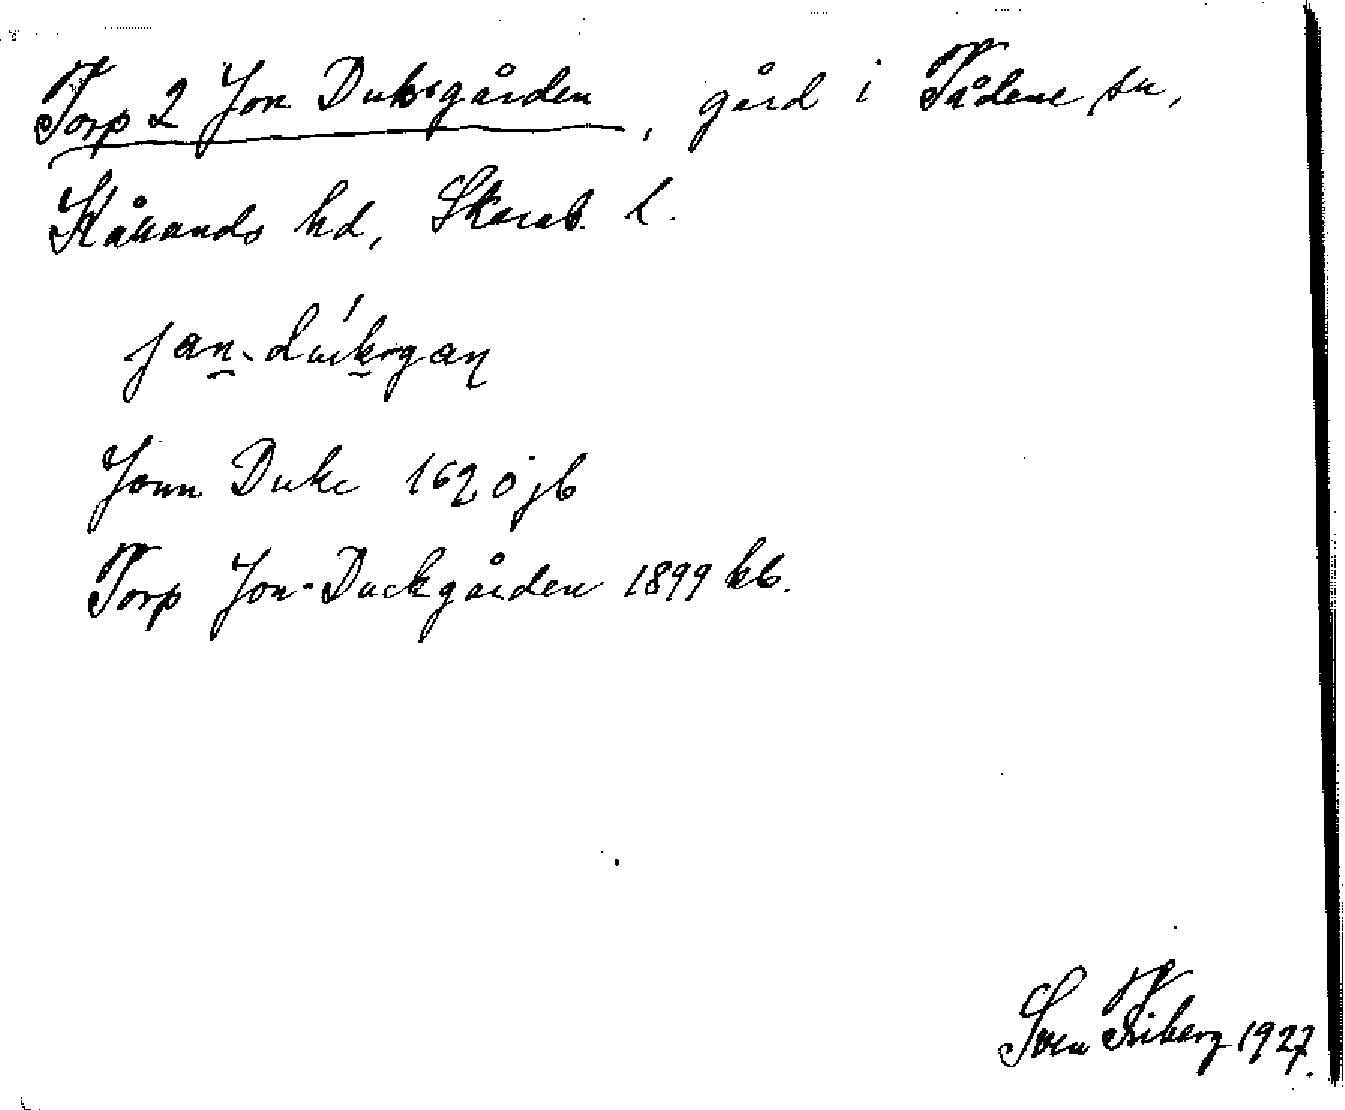 Torp 2 Jon Duksgården, gård i Tådene sn,
Kållands hd, Skarab. l.
jan-dúksgaɳ
Jonn Duke 1620 jb
Torp Jon-Duckgården 1899 kb.
Sven Friberg 1927.